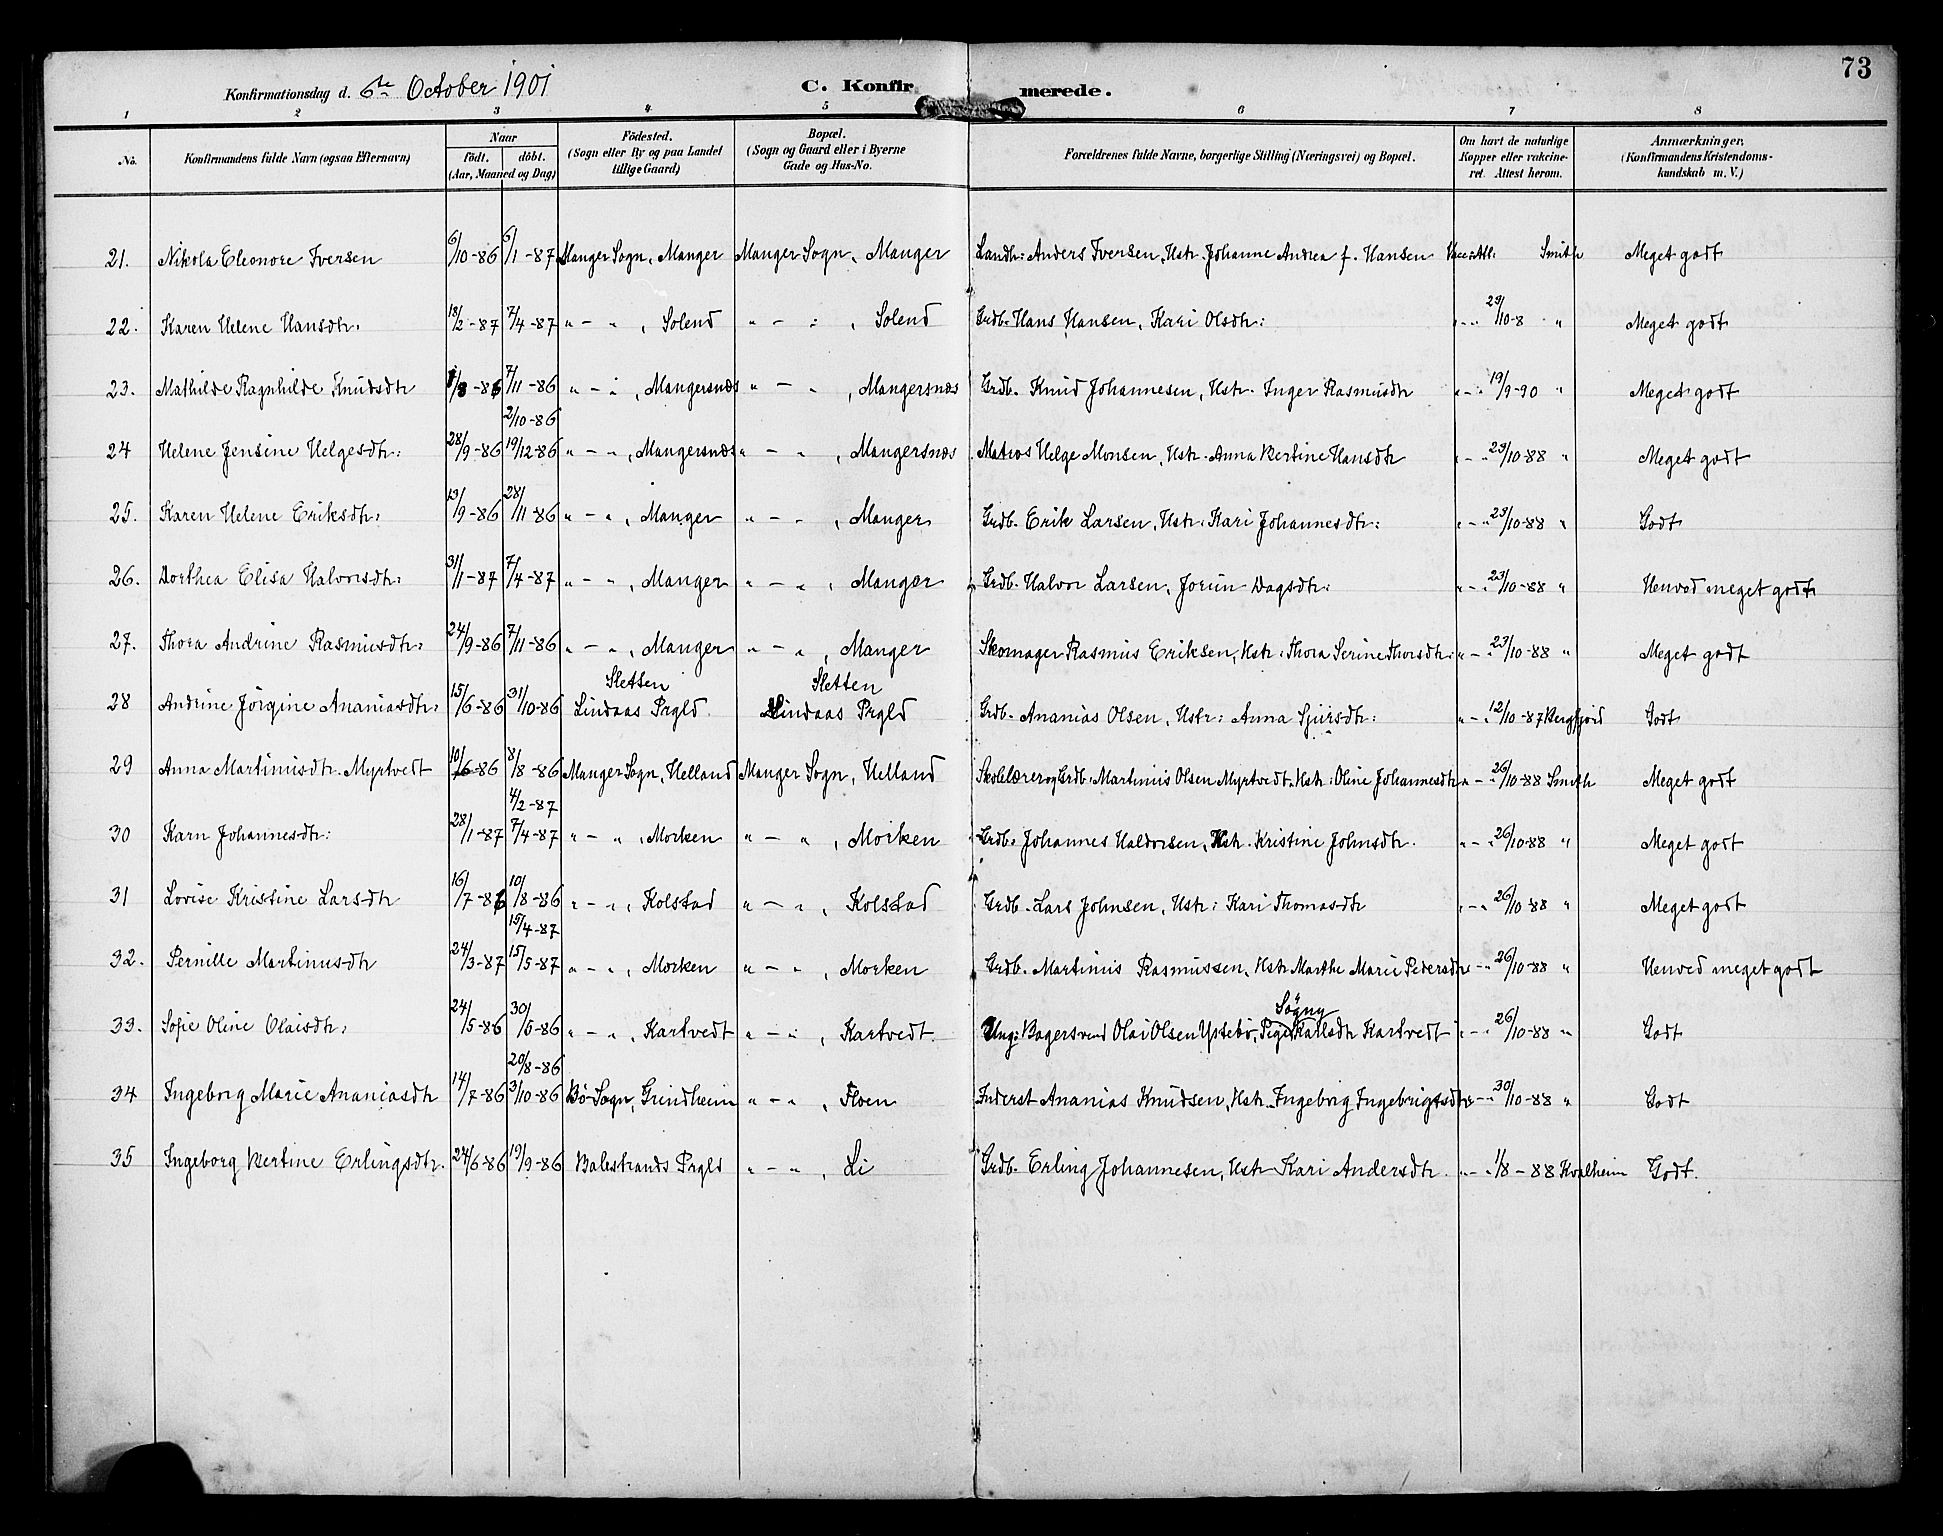 73
Konfirmationsdag d. 6te October 1901 C. Konfirmerede.
1 2 3 4 5 6 7 8
No. Konfirmandens fulde Navn (ogsaa Efternavn) Naar födt. döbt. (Aar, Maaned og Dag) Födested. (Sogn eller By og paa Landet tillige Gaard) Bopæl. (Sogn og Gaard eller i Byerne Gade og Hus-No. Forældrenes fulde Navne, borgerlige Stilling (Næringsvei) og Bopæl. Om havt de naturlige Kopper eller vakcineret. Attest herom. Anmærkninger. (Konfirmandens Kristendomskundskab m. V.)
21. Nikola Eleonore Iversen 6/10-86 6/1-87 Manger Sogn, Manger Manger Sogn, Manger Landh: Anders Iversen, Hstr. Johanne Andrea f. Hansen Vacc. Att: Smith Meget godt
22. Karen Helene Hansdtr: 18/2-87 7/4-87 " - " , Solend " - " , Solend Grdb. Hans Hansen, Kari Olsdtr: " - " 23/10-8 " Meget godt
23. Mathilde Ragnhilde Knudsdtr /8-86 7/11-86 " - " , Mangersnæs " - " , Mangersnæs Grdb. Knud Johannesen, Hstr. Inger Rasmusdtr " - " 19/9-90 " Meget godt
2/10-86
24 Helene Jensine Helgesdtr: 28/9-86 19/12-86 " - " , Mangersnæs " - " , Mangersnæs Matros Helge Monsen, Hstr. Anna Bertine Hansdtr " - " 23/10-88 " Meget godt
25. Karen Helene Eriksdtr: 13/9-86 28/11-86 " - " , Manger " - " , Manger Grdb. Erik Larsen, Hstr: Kari Johannesdtr: " - " 23/10-88 " Godt
26. Dorthea Elisa Halvorsdtr: 31/1-87 7/4-87 " - " , Manger " - " , Manger Grdb. Halvor Larsen, Jorun Dagsdtr: " - " 23/10-88 " Henved meget godt
27. Thora Andrine Rasmusdtr: 24/9-86 7/11-86 " - " , Manger " - " , Manger Skomager Rasmus Eriksen, Hstr: Thora Serine Thorsdtr: " - " 23/10-88 " Meget godt
Sletten Sletten
28 Andrine Jörgine Ananiasdtr: 15/6-86 31/10-86 Lindaas Prgld. Lindaas Prgld Grdb. Ananias Olsen, Hstr: Anna Sjursdtr: " - " 12/10-87 Bergfjord Godt
29 Anna Martinusdtr. Myrtvedt 10/6-86 8/8-86 Manger Sogn, Helland Manger Sogn, Helland Skolelærer og Grdb: Martinus Olsen Myrtvedt, Hstr: Oline Johannesdtr " - " 26/10-88 Smith Meget godt
4/2-87
30 Karn Johannesdtr: 28/1-87 7/4-87 " - " , Morken " - " , Morken Grdb. Johannes Haldorsen, Hstr. Kristine Johnsdtr. " - " 26/10-88 " Meget godt
31 Lovise Kristine Larsdtr 16/7-86 10/8-86 " - " , Kolstad " - " , Kolstad Grdb. Lars Johnsen, Hstr: Kari Thomasdtr " - " 26/10-88 " Meget godt
15/4-87
32. Pernille Martinusdtr 24/3-87 15/5-87 " - " , Morken " - " , Morken Grdb. Martinus Rasmussen, Hstr Marthe Marie Pedersdtr " - " 26/10-88 " Henved meget godt
Søgny
33. Sofie Oline Olaisdtr: 24/5-86 30/5-86 " - " , Kartvedt " - " , Kartvedt. Ung: Bagersvend Olai Olsen Ystebø, Pige Karlsdtr Kartvedt " - " 26/10-88 " Godt
20/8-86
34 Ingeborg Marie Ananiasdtr 14/7-86 3/10-86 Bö Sogn, Grindheim " - " , Floen Inderst Ananias Knudsen, Hstr. Ingeborg Ingebrigtsdtr " - " 30/10-88 " Godt
35 Ingeborg Bertine Erlingsdtr. 24/6-86 19/9-86 Balestrands Prgld " - " , Li Grdb. Erling Johannesen, Hstr Kari Andersdtr " - " 1/8-88 Kvalheim Godt.